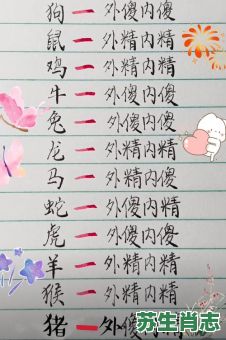 狗一外傻内精
鼠一外精内精
鸡一外精内精
牛一外傻内傻
兔一外傻内傻
龙一外精内精
马一外精内精
蛇一外傻内精
虎一外傻内精
羊一外精内精
猴一外精内精
猪一外傻内傻
苏生肖志